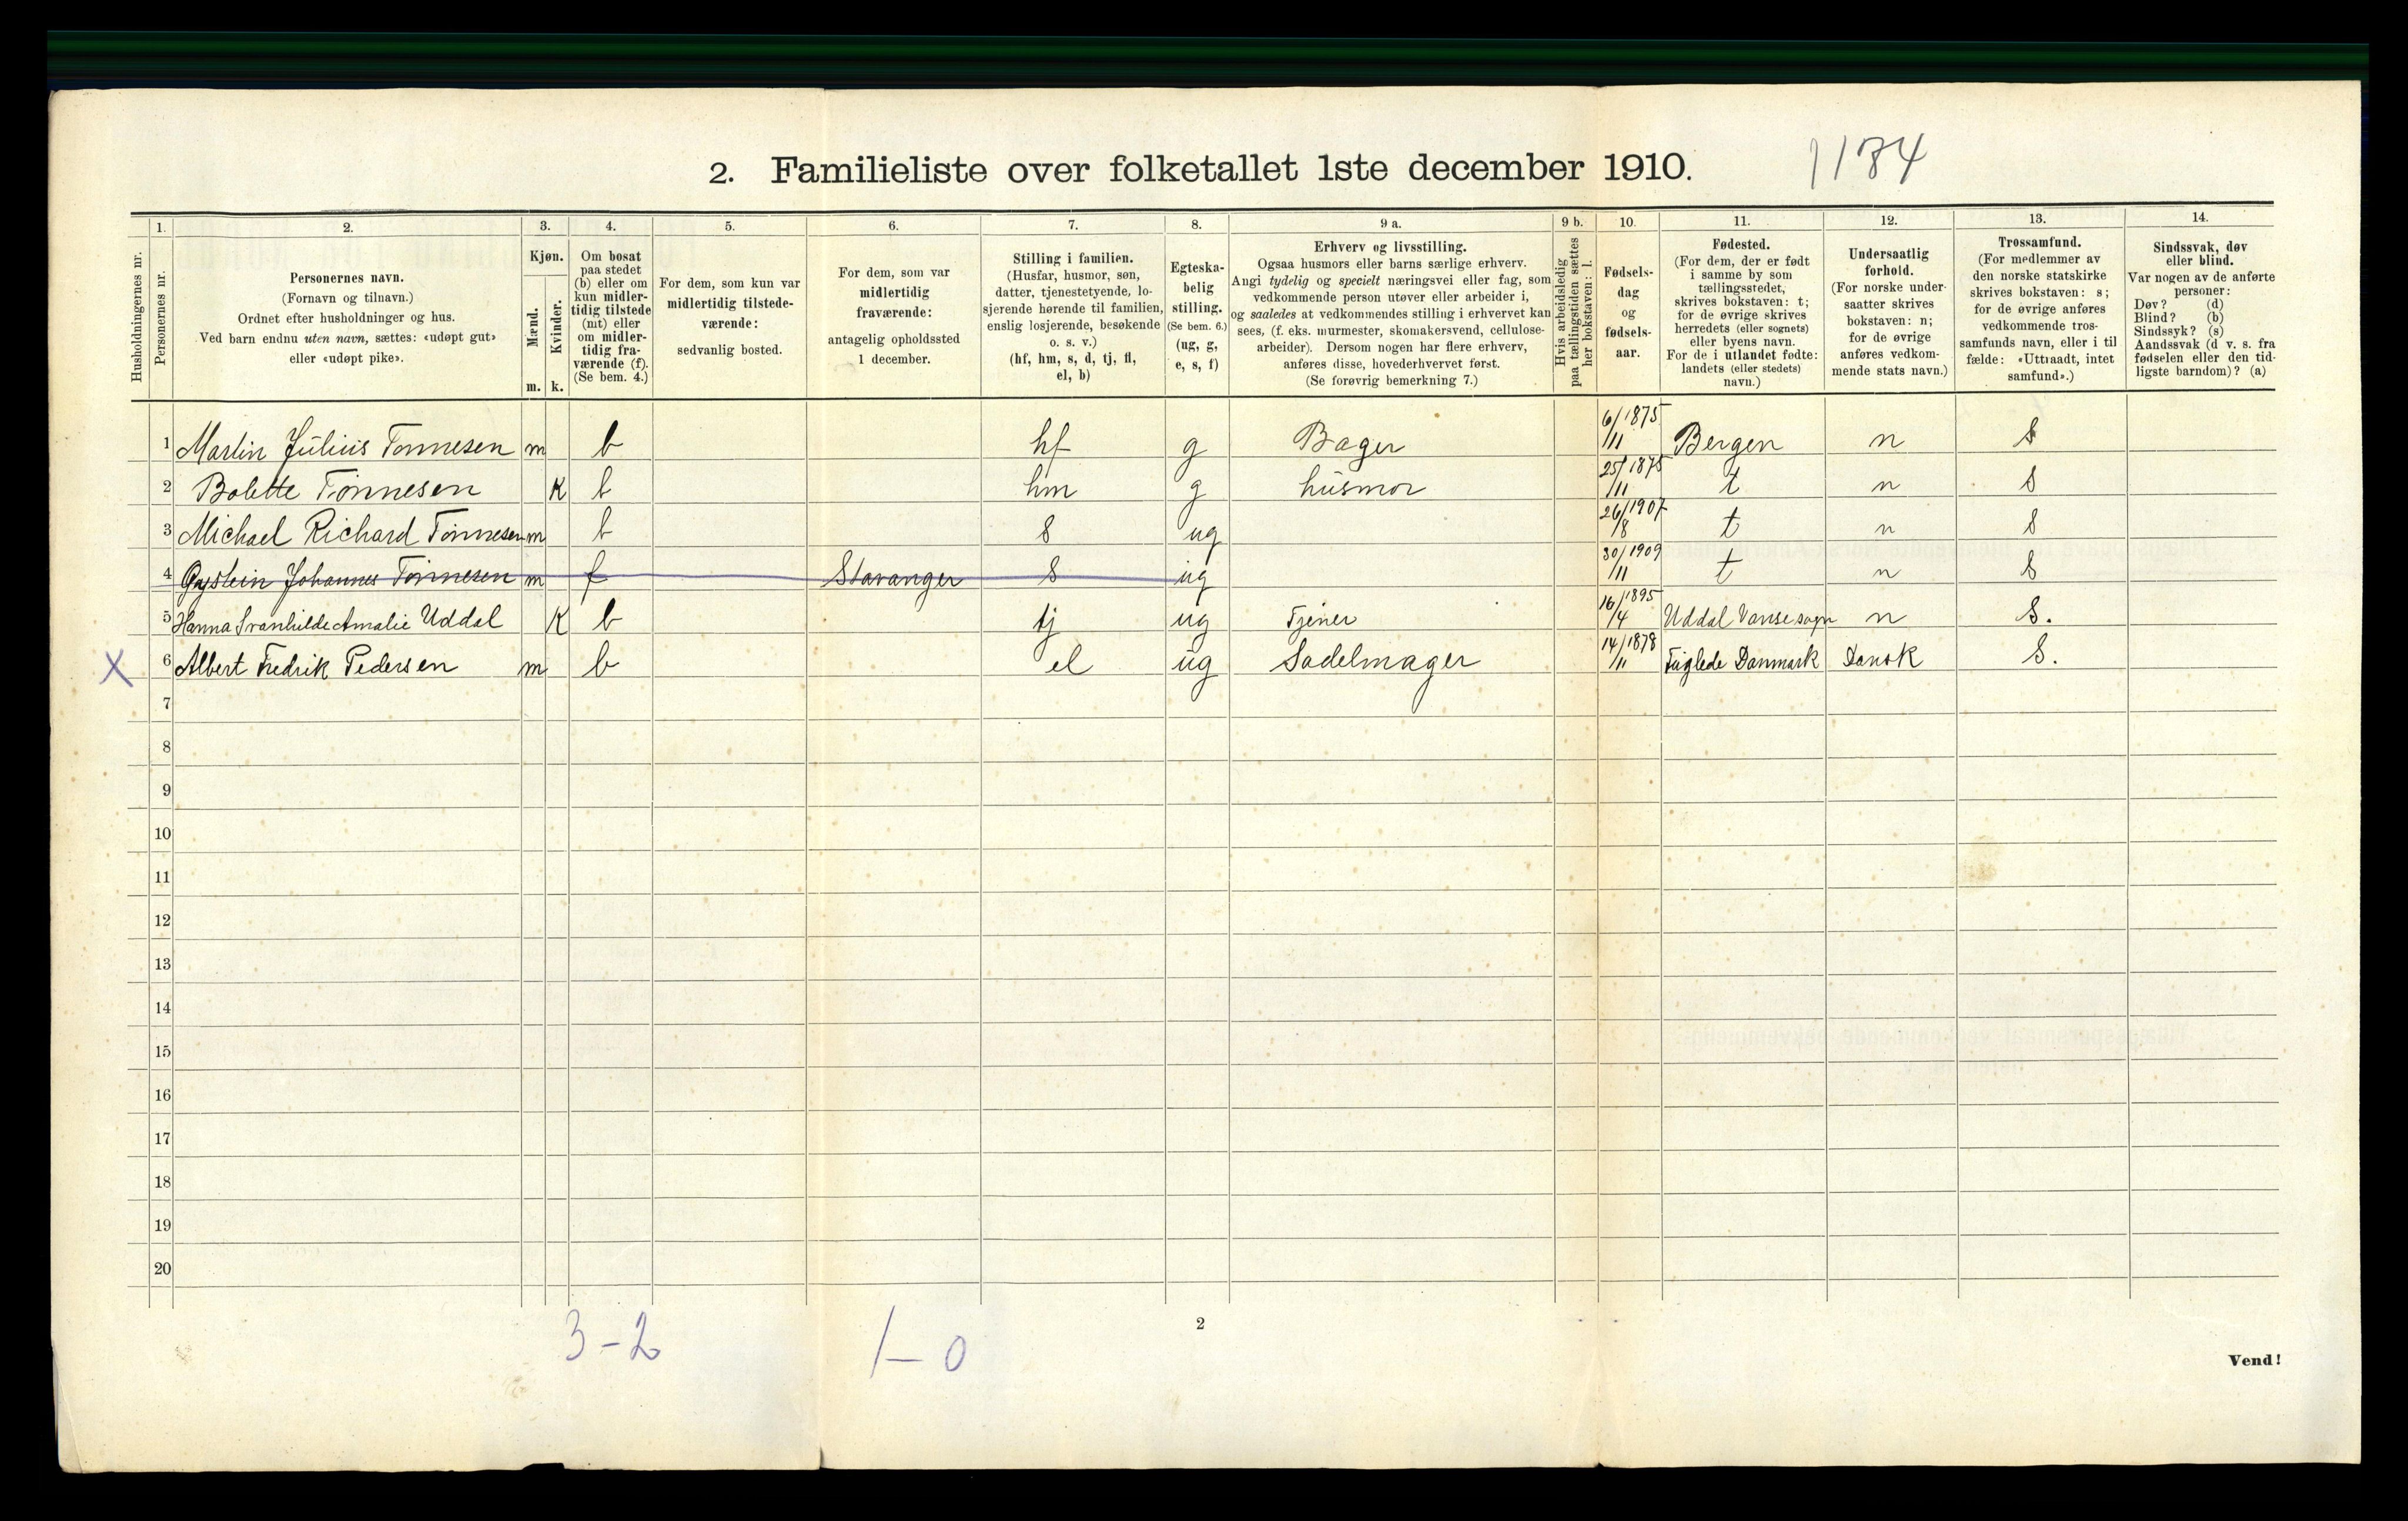 2. Familieliste over folketallet 1ste december 1910.
1184
1. 2. 3. 4. 5. 6. 7. 8. 9 a. 9 b. 10. 11. 12. 13. 14.
Husholdningernes nr.
Personernes nr.
Personernes navn.
(Fornavn og tilnavn.)
Ordnet efter husholdninger og hus.
Ved barn endnu uten navn, sættes: «udøpt gut»
eller «udøpt pike».
Kjøn.
Mænd.
Kvinder.
m. k.
Om bosat
paa stedet
(b) eller om
kun midler-
tidig tilstede
(mt) eller
om midler-
tidig fra-
værende (f).
(Se bem. 4.)
For dem, som kun var
midlertidig tilstede-
værende:
sedvanlig bosted.
For dem, som var
midlertidig
fraværende:
antagelig opholdssted
1 december.
Stilling i familien.
(Husfar, husmor, søn,
datter, tjenestetyende, lo-
sjerende hørende til familien,
enslig losjerende, besøkende
o. s. v.)
(hf, hm, s, d, tj, fl,
el, b)
Egteska-
belig
stilling.
(Se bem. 6.)
(ug, g,
e, s, f)
Erhverv og livsstilling.
Ogsaa husmors eller barns særlige erhverv.
Angi tydelig og specielt næringsvei eller fag, som
vedkommende person utøver eller arbeider i,
og saaledes at vedkommendes stilling i erhvervet kan
sees, (f. eks. murmester, skomakersvend, cellulose-
arbeider). Dersom nogen har flere erhverv,
anføres disse, hovederhvervet først.
(Se forøvrig bemerkning 7.)
Hvis arbeidsledig
paa tællingstiden sættes
her bokstaven: l.
Fødsels-
dag
og
fødsels-
aar.
Fødested.
(For dem, der er født
i samme by som
tællingsstedet,
skrives bokstaven: t;
for de øvrige skrives
herredets (eller sognets)
eller byens navn.
For de i utlandet fødte:
landets (eller stedets)
navn.)
Undersaatlig
forhold.
(For norske under-
saatter skrives
bokstaven: n;
for de øvrige
anføres vedkom-
mende stats navn.)
Trossamfund.
(For medlemmer av
den norske statskirke
skrives bokstaven: s;
for de øvrige anføres
vedkommende tros-
samfunds navn, eller i til
fælde: «Uttraadt, intet
samfund».)
Sindssvak, døv
eller blind.
Var nogen av de anførte
personer:
Døv? (d)
Blind? (b)
Sindssyk? (s)
Aandssvak (d v. s. fra
fødselen eller den tid-
ligste barndom)? (a)
1 Martin Julius Tønnesen m b hf g Bager 6/11 1875 Bergen n S
2 Bolette Tønnesen K b hm g husmor 25/11 1875 t n S
3 Michael Richard Tønnesen m b s ug 26/8 1907 t n S
4 Øystein Johannes Tønnesen m f Stavanger s ug 30/11 1909 t n S
5 Hanna Svanhilde Amalie Uddal K b tj ug Tjener 16/4 1895 Uddal Vanse sogn n S.
X 6 Albert Fredrik Pedersen m b el ug Sadelmager 14/11 1878 Fuglede Danmark Dansk S.
7
8
9
10
11
12
13
14
15
16
17
18
19
20
3-2
1-0
2
Vend!